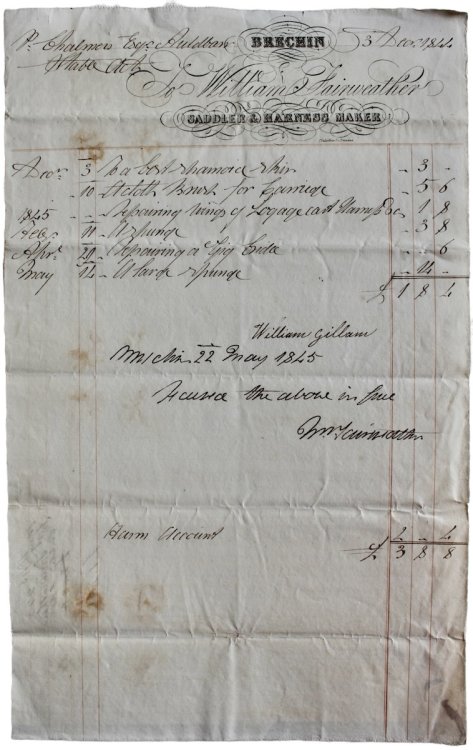 P. Chalmers Esqr Auldbar BRECHIN 3 Decr. 1844
Stable Acct
To William Fairweather
SADDLER & HARNESS MAKER
Decr. 3 To a best Shamoca Skin - 3 -
10 A Cloth Brush for Carriage - 5 6
1845 - Repairing wings of Logage cart Harness &c - 1 8
Feb. 11 A Spunge - 3 8
Apr. 29 Repairing a Gig - - 6
May 14 A large Spunge - 14 -
£ 1 8 4
William Gillam
Brechin 22 May 1845
the above in full
Wm Fairweather
Farm Account 2 - 4
£ 3 8 8